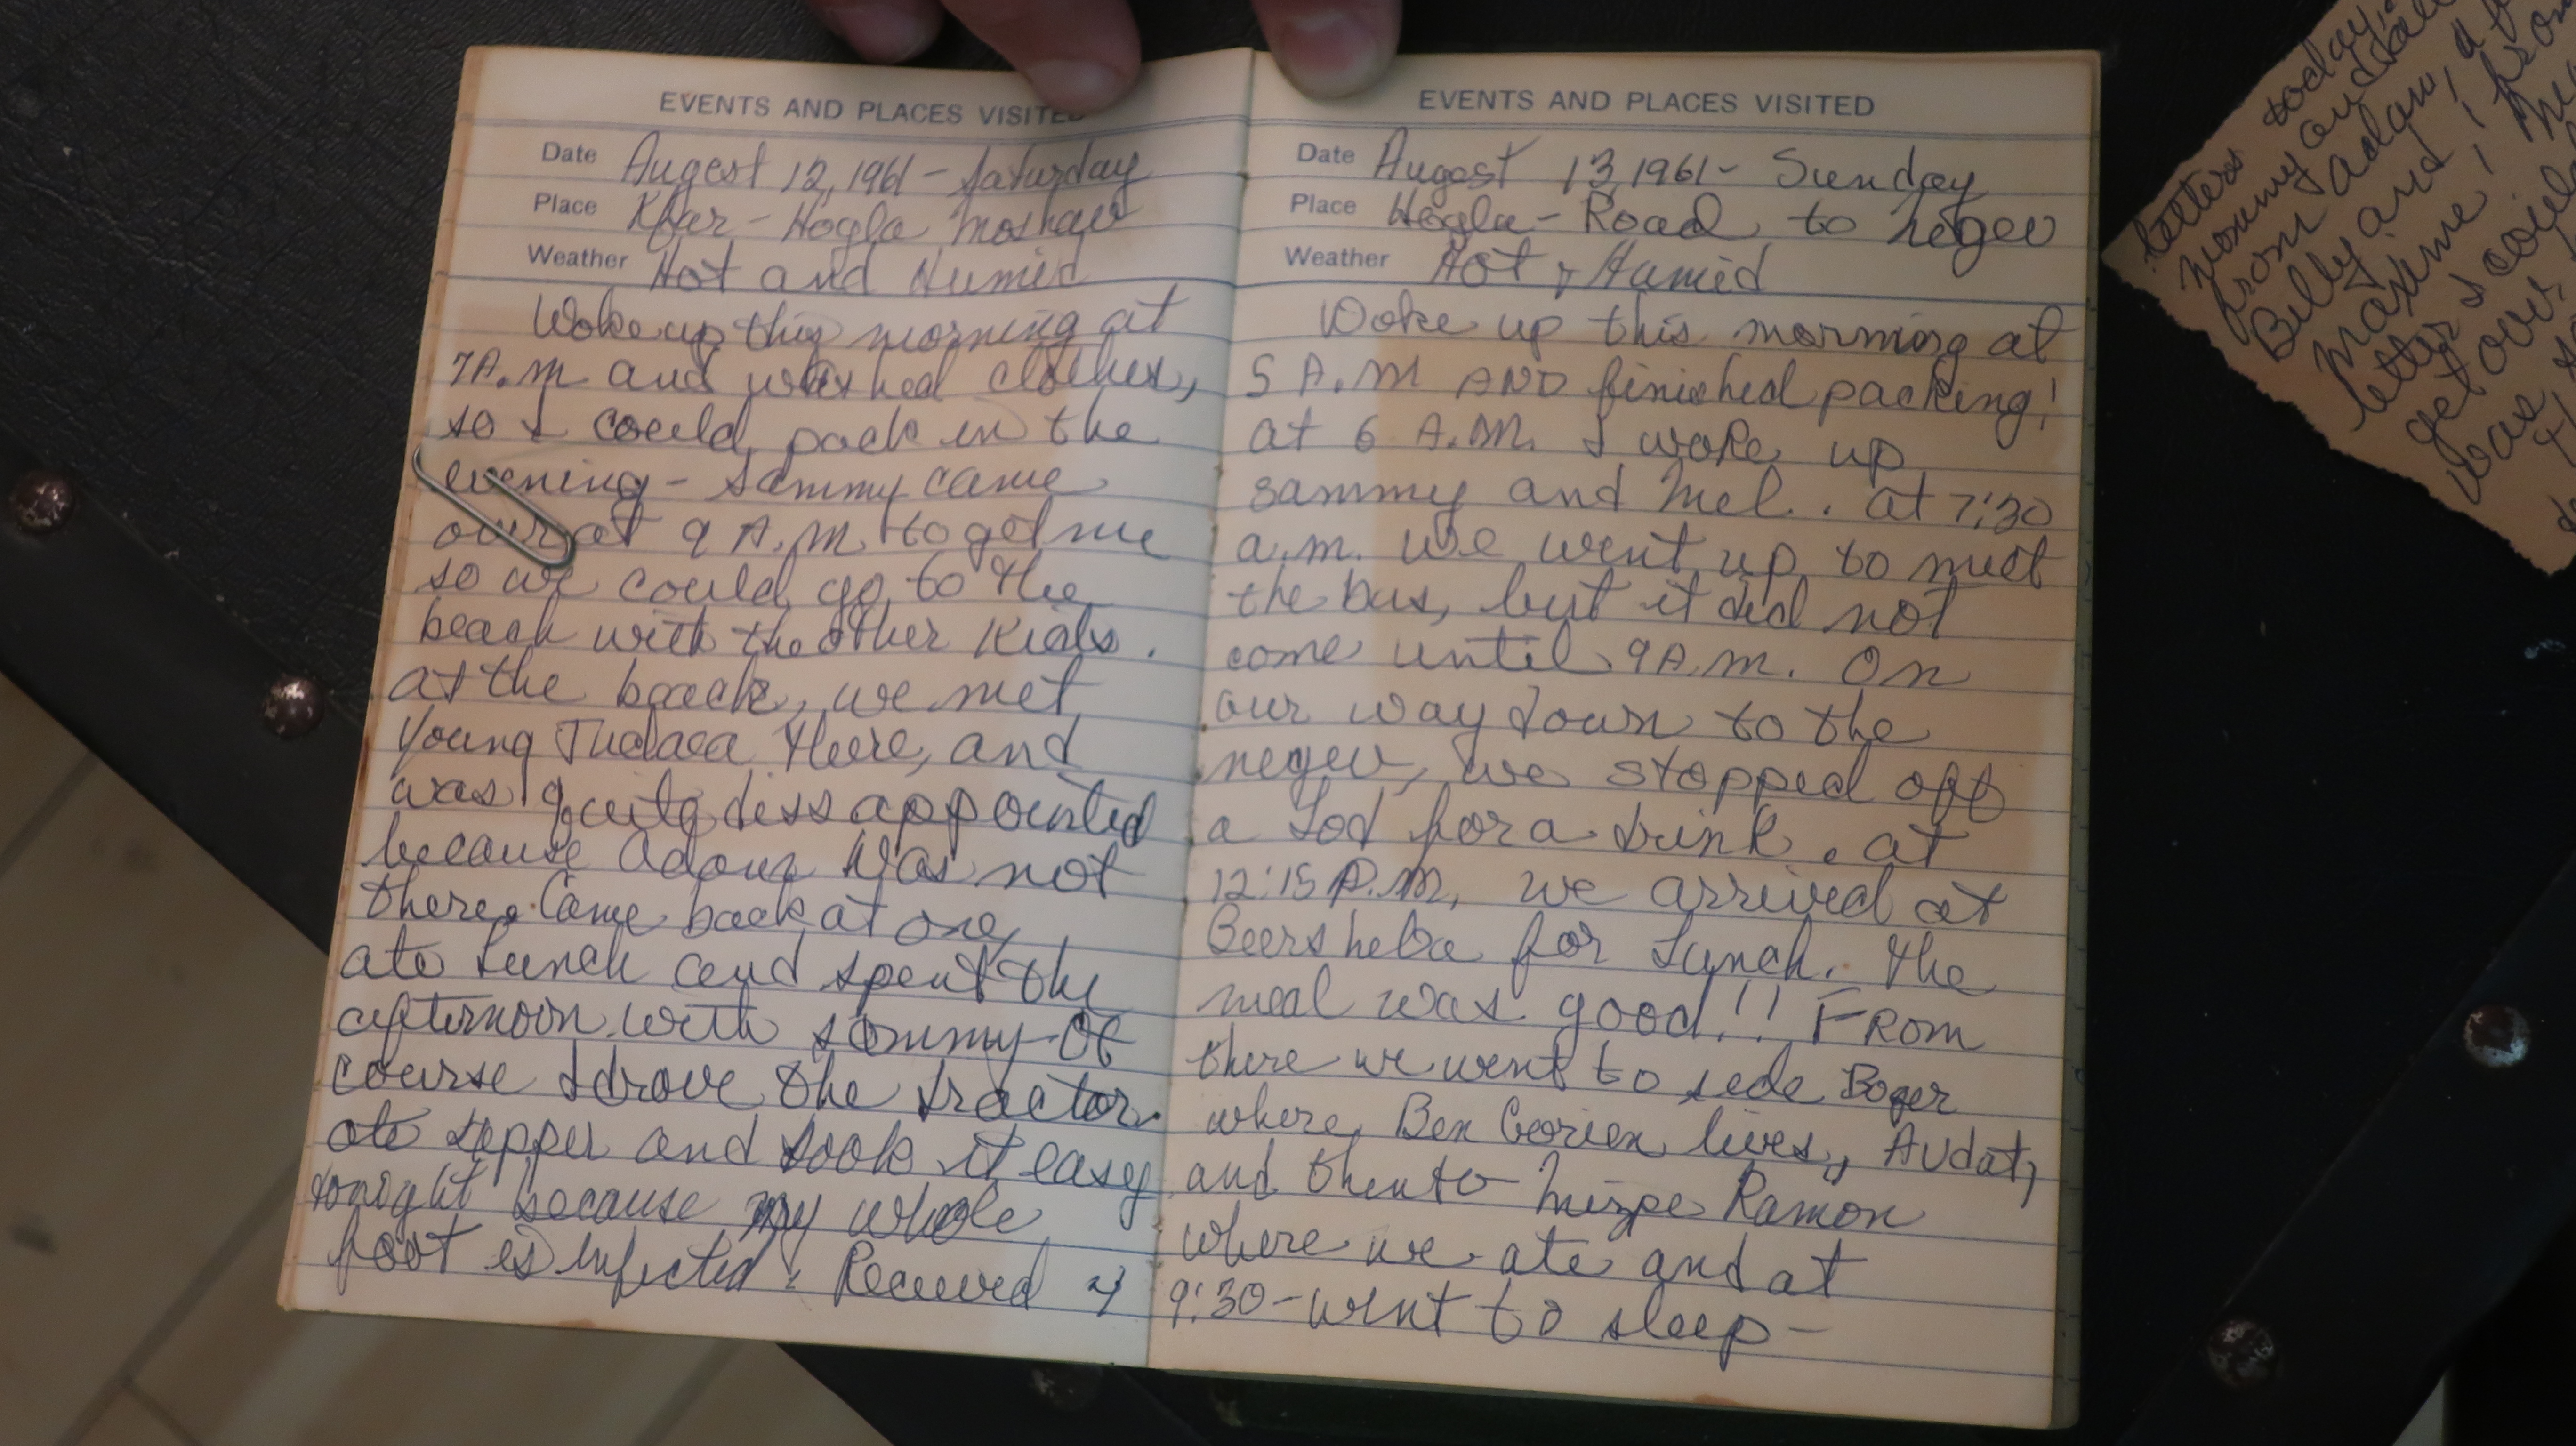 EVENTS AND PLACES VISITED
Date August 12, 1961 - Saturday
Place Kfar - Hogla Moshav
Weather Hot and Humid
Woke up this morning at
7A.m and washed clothes,
so I could pack in the
evening - Sammy came
over at 9 A.M. to get me
so we could go to the
beach with the other Kids.
at the beach, we met
Young Judaea there, and
was quite dissappointed
because Adam was not
there. Came back at one,
ate Lunch and spent the
afternoon with Sammy - Of
course I drove the tractor.
ate supper and took it easy
tonight because my whole
foot is infected. Received 4
EVENTS AND PLACES VISITED
Date August 13, 1961 - Sunday
Place Hogla - Road to Negev
Weather Hot & Humid
Woke up this morning at
5 A.M AND finished packing!
at 6 A.M. I woke up
Sammy and Mel.. at 7:30
a.m. we went up to meet
the bus, but it did not
come until 9A.M. On
our way down to the
negev, we stopped off
a Lod for a drink. at
12:15 P.M, we arrived at
Beersheba for Lunch. The
meal was good!! FROM
there we went to sede Boqer
where, Ben Gorien lives, Avdat,
and then to Mizpe Ramon
where we ate and at
9:30 - went to sleep -
letters today,
mommy and
from Adam, a
Billy and 1 from
Maxime!
letters could
get over
was